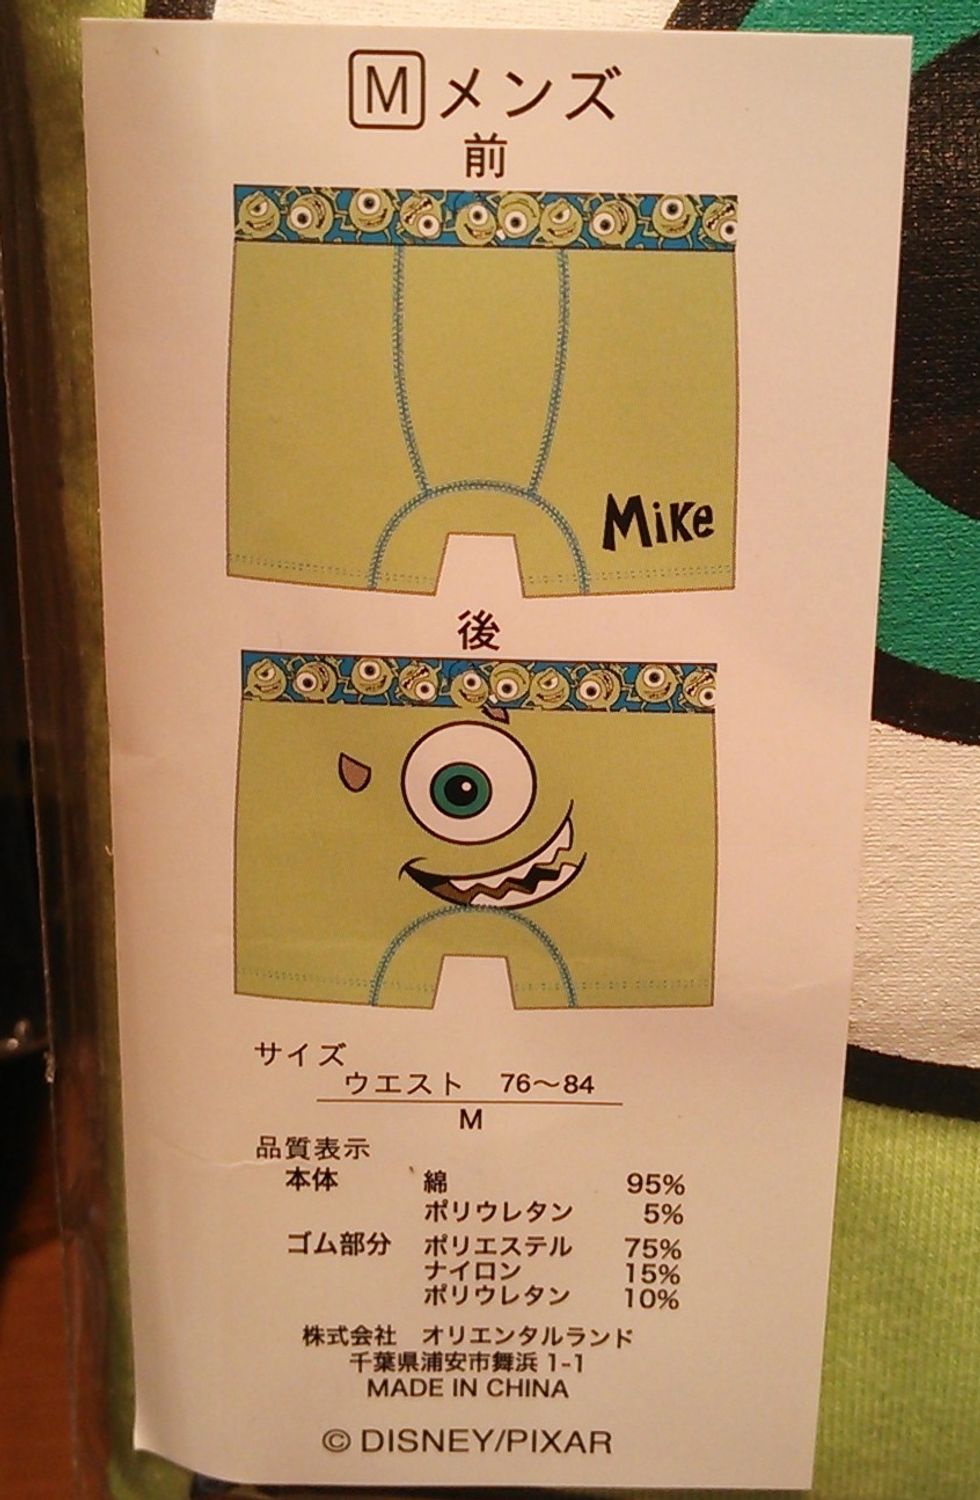 M メンズ
前
Mike
後
サイズ
ウエスト 76～84
M
品質表示
本体 綿 95%
ポリウレタン 5%
ゴム部分 ポリエステル 75%
ナイロン 15%
ポリウレタン 10%
株式会社 オリエンタルランド
千葉県浦安市舞浜 1-1
MADE IN CHINA
© DISNEY/PIXAR